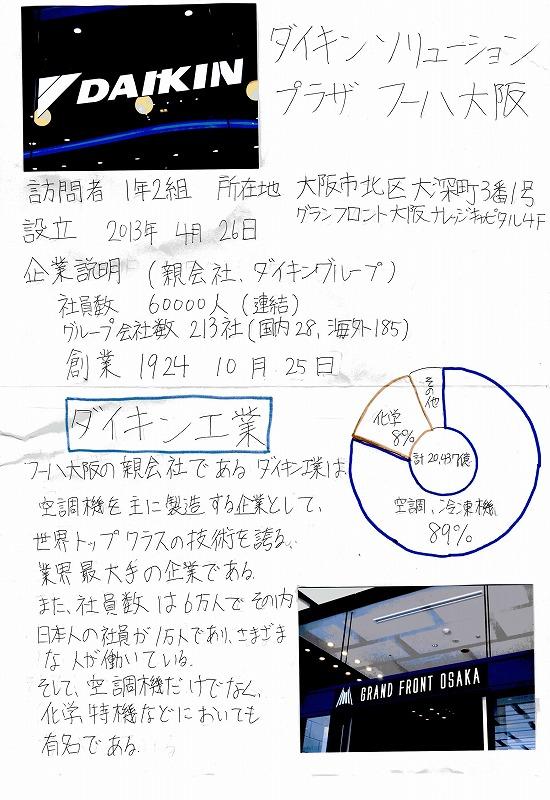 DAIKIN
ダイキン ソリューション
プラザ フーハ大阪
訪問者 1年2組 所在地 大阪市北区大深町3番1号
グランフロント大阪ナレッジキャピタル4F
設立 2013年 4月 26日
企業説明 (親会社、ダイキングループ)
社員数 60000人(連結)
グループ会社数 213社(国内28、海外185)
創業 1924 10月25日
ダイキン工業
その他
化学
8%
計20,437億
空調、冷凍機
89%
フーハ大阪の親会社であるダイキン工業は、
空調機を主に製造する企業として、
世界トップクラスの技術を誇る、
業界最大手の企業である。
また、社員数は6万人でその内
日本人の社員が1万人であり、さまざま
な人が働いている。
そして、空調機だけでなく、
化学、特機などにおいても
有名である。
GRAND FRONT OSAKA